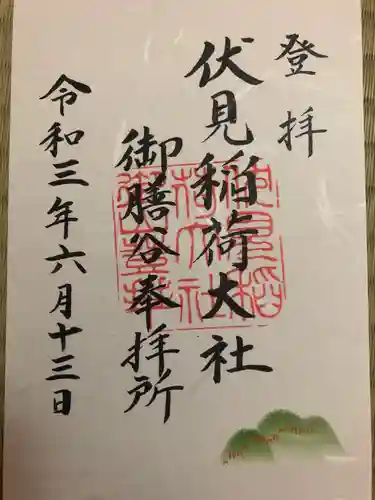 登拝
伏見稲荷大社
御膳谷奉拝所
令和三年六月十三日